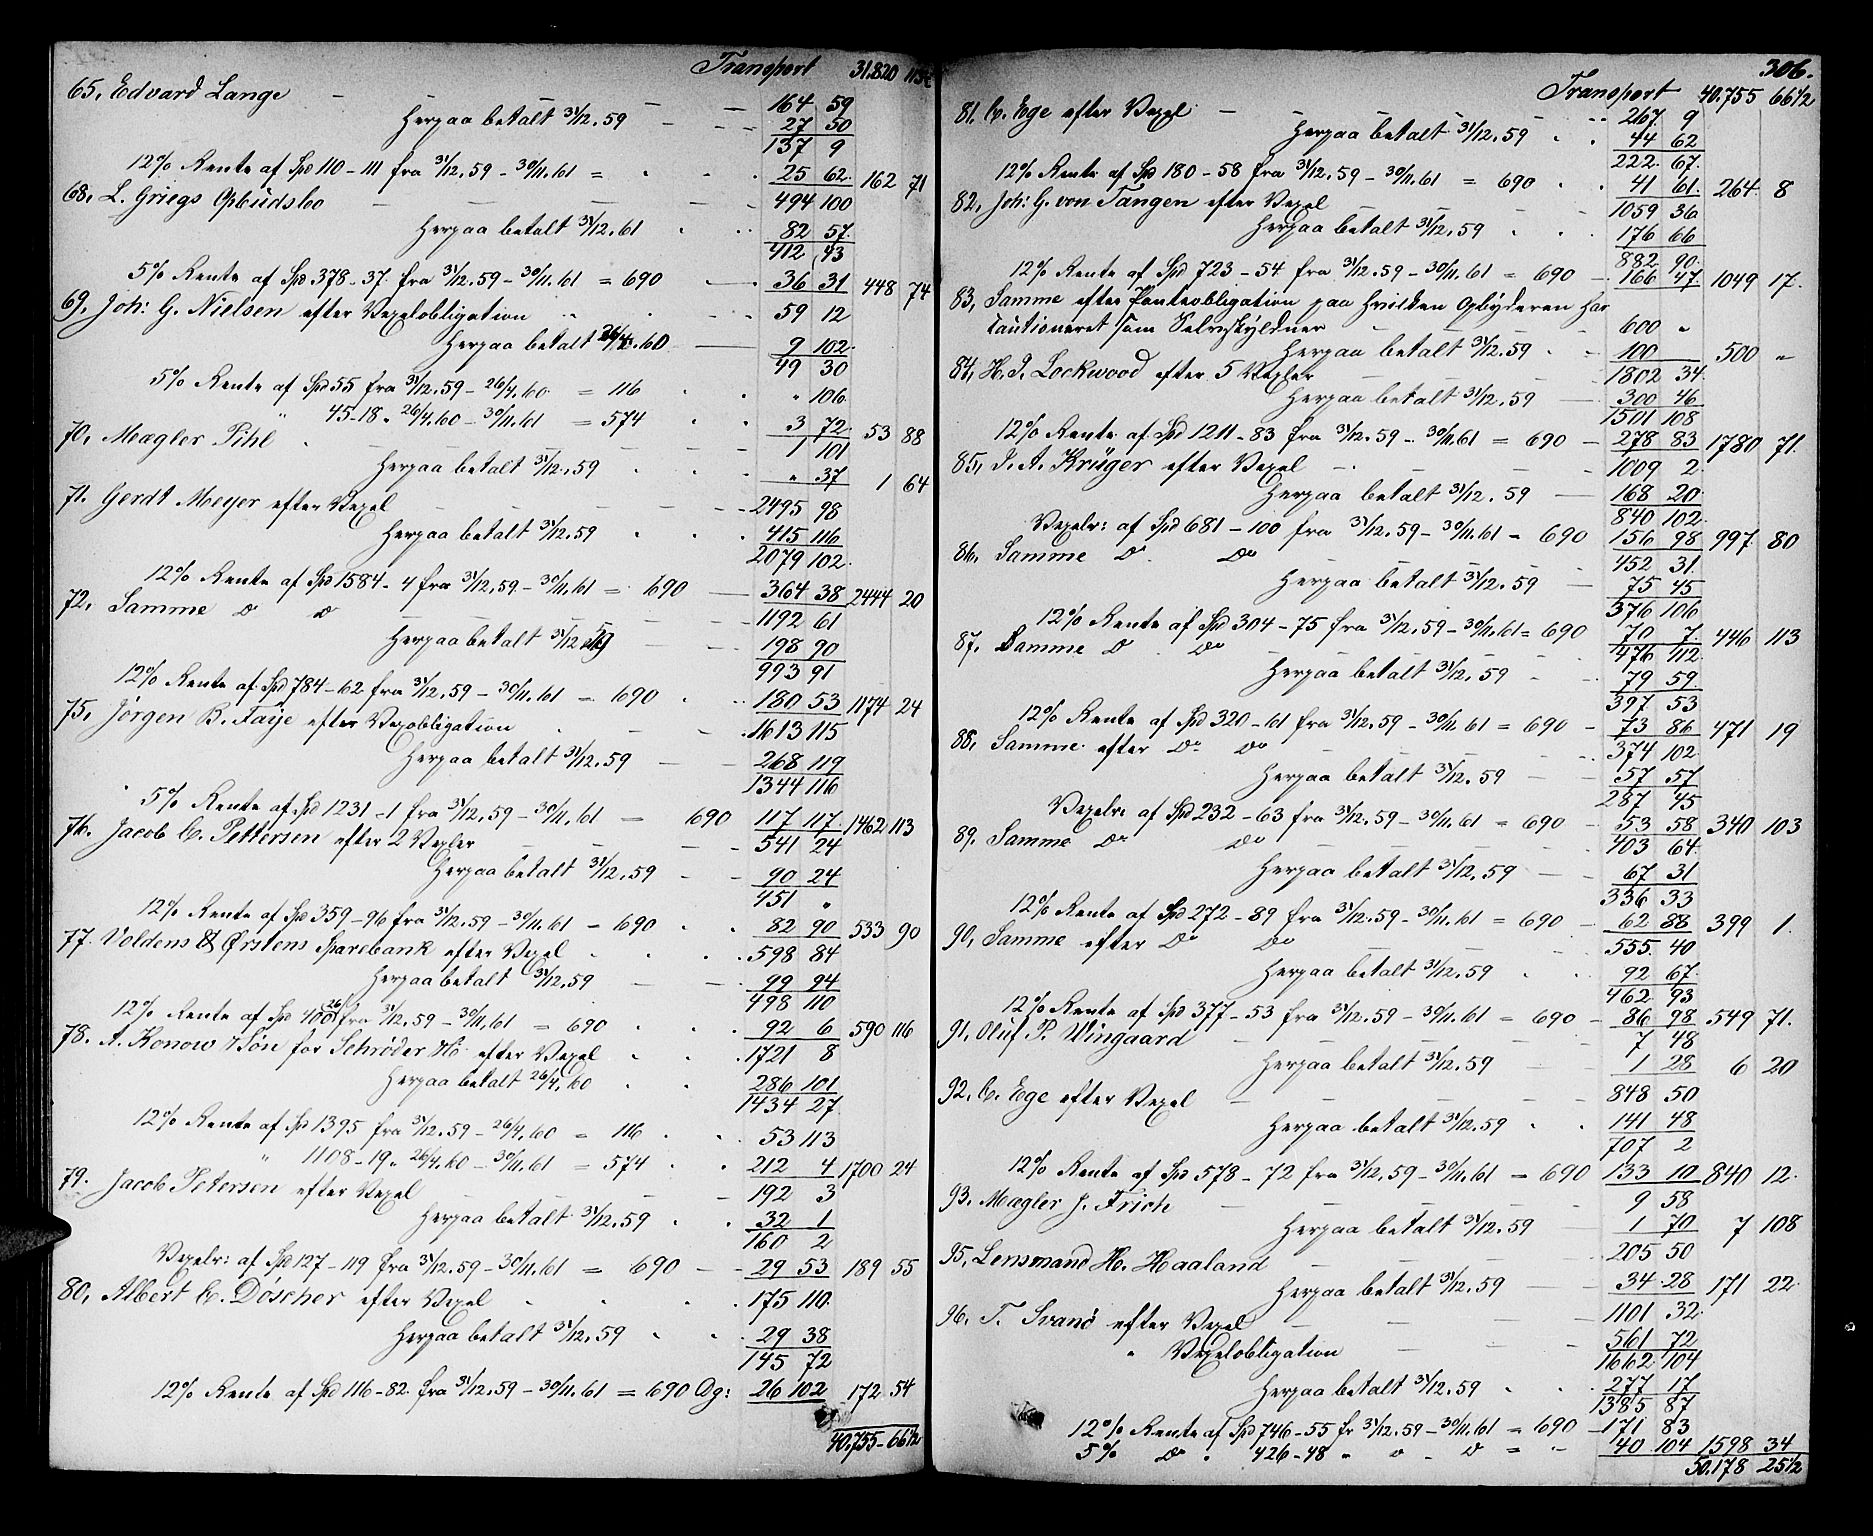 Transport 31.820 113½
65, Edvard Lange — — — 164 59
Herpaa betalt 31/12.59 — 27 50
137 9
12% Rente af Spd 110-111 fra 31/12.59 - 30/11.61 = 25 62. 162 71
68, L. Griegs Opbudsbo — — — 494 100
Herpaa betalt 31/12.61 82 57.
412 43
5% Rente af Spd 378-37. fra 31/12.59 - 30/11.61 = 690 — 36 31 448 74
69, Joh: G. Nielsen efter Vexelobligation 59 12
Herpaa betalt 26/4.60 — 9 102.
49 30
5% Rente af Spd 55 fra 31/12.59 - 26/4.60 = 116 " 106.
" 45-18. 26/4.60 - 30/11.61 = 574 3 72 53 88
70, Mægler Pihl 1 101
Herpaa betalt 31/12.59 " 37 1 64
71. Gerdt Meyer efter Vexel — — 2495 98
Herpaa betalt 31/12.59 415 116
2079 102.
12% Rente af Spd 1584-4 fra 31/12.59 - 30/11.61 = 690 — 364 38 2444 20
72, Samme do do — 1192 61
Herpaa betalt 31/12 59 198 90
993 91
12% Rente af Spd 784-62 fra 31/12.59 - 30/11.61 = 690 180 53 1174 24
75, Jørgen B. Faye efter Vexobligation 1613 115
Herpaa betalt 31/12.59 — 268 119
1344 116
5% Rente af Spd 1231-1 fra 31/12.59 - 30/11.61 = 690 117 117. 1462 113
76. Jacob C. Pettersen efter 2 Vexler — 541 24
Herpaa betalt 31/12.59 — 90 24
451 "
12% Rente af Spd 359-96 fra 31/12.59 - 30/11.61 = 690 82 90 533 90
77. Voldens & Ørstens Sparebank efter Vexel 598 84
Herpaa betalt 31/12.59 — 99 94
498 110
12% Rente af Spd 400 fra 31/12.59 - 30/11.61 = 690 92 6 590 116
78. A. Konow & Søn for Schrøder & Co: efter Vexel 1721 8
Herpaa betalt 26/4.60 286 101
1434 27.
12% Rente af Spd 1395 fra 31/12.59 - 26/4.60 = 116 53 113
" 1108-19. 26/4.60 - 30/11.61 = 574 212 4 1700 24
79. Jacob Petersen efter Vexel — 192 3
Herpaa betalt 31/12.59 32 1
160 2
Vexelr: af Spd 127-119 fra 31/12.59 - 30/11.61 = 690 — 29 53 189 55
80, Albert C. Döscher efter Vexel 175 110.
Herpaa betalt 31/12.59 29 38
145 72
12% Rente af Spd 116-82. fra 31/12.59 - 30/11.61 = 690 Dg: 26 102 172 54
40.755-66½
306.
Transport 40.755 66½
81. C. Ege efter Vexel — 267 9
Herpaa betalt 31/12.59 44 62
222. 67.
12% Rente af Spd 180-58 fra 31/12.59 - 30/11.61 = 690 41 61. 264. 8
82, Joh: G. von Tangen efter Vexel 1059 36
Herpaa betalt 31/12.59 176 66
882. 90.
12% Rente af Spd 723-54 fra 31/12.59 - 30/11.61 = 690 — 166 47. 1049 17.
83, Samme efter Panteobligation paa hvilken Opbyderen har
Cautioneret som Selvskyldner 600 "
Herpaa betalt 31/12.59 100 500 "
84, H. I. Lockwood efter 5 Vexler 1802 34.
Herpaa betalt 31/12.59 — 300 46
1501 108
12% Rente af Spd 1211-83 fra 31/12.59 - 30/11.61 = 690 — 278 83 1780 71.
85, I. A. Krüger efter Vexel — 1009 2.
Herpaa betalt 31/12.59 — 168 20.
840 102.
Vexelr: af Spd 681-100 fra 31/12.59 - 30/11.61 = 690 156 98 997 80
86, Samme do do 452 31.
Herpaa betalt 31/12.59 — 75 45
376 106
12% Rente af Spd 304-75 fra 31/12.59 - 30/11.61 = 690 70 7. 446 113
87. Samme do do 476 112.
Herpaa betalt 31/12.59 79 59.
397 53
12% Rente af Spd 320-61 fra 31/12.59 - 30/11.61 = 690 — 73 86 471 19
88, Samme efter do do 374 102.
Herpaa betalt 31/12.59 — 57 57
287 45
Vexelr: af Spd 232-63 fra 31/12.59 - 30/11.61 = 690 — 53 58 340 103
89. Samme do do 403 64.
Herpaa betalt 31/12.59 — 67 31
336 33
12% Rente af Spd 272-89 fra 31/12.59 - 30/11.61 = 690 — 62 88 399 1.
90, Samme efter do do 555. 40
Herpaa betalt 31/12.59 92 67.
462 93
12% Rente af Spd 377-53 fra 31/12.59 - 30/11.61 = 690 — 86 98 549 71.
91, Oluf P. Wingaard — 7 48
Herpaa betalt 31/12.59 — 1 28 6 20
92, C. Ege efter Vexel — 848 50
Herpaa betalt 31/12.59 141 48
707 2
12% Rente af Spd 578-72 fra 31/12.59 - 30/11.61 = 690 133 10 840 12.
93, Mægler J. Frich — 9 58
Herpaa betalt 31/12.59 — 1 70 7 108
95, Lensmand H. Haaland — 205 50
Herpaa betalt 31/12.59 — 34 28 171 22.
96, T. Svanö efter Vexel — 1101 32.
" Vexelobligation — 561 72
1662 104
Herpaa betalt 31/12.59 277 17
1385 87
12% Rente af Spd 746-55 fr 31/12.59 - 30/11.61 = 690 — 171 83
5% do " 426-48 " do = — 40 104 1598 34
50.178 25½